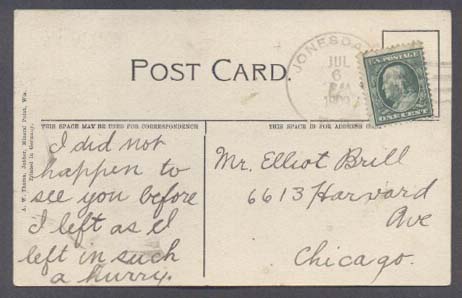 POST CARD.
JONESDA
JUL
6
1909
U.S. POSTAGE
ONE CENT
THIS SPACE MAY BE USED FOR CORRESPONDENCE
THIS SPACE IS FOR ADDRESS
A. W. Thorns, Jobber, Mineral Point, Wis.
Printed in Germany.
I did not
happen to
see you before
I left as I
left in such
a hurry.
Mr. Elliot Brill
6613 Harvard
Ave
Chicago.